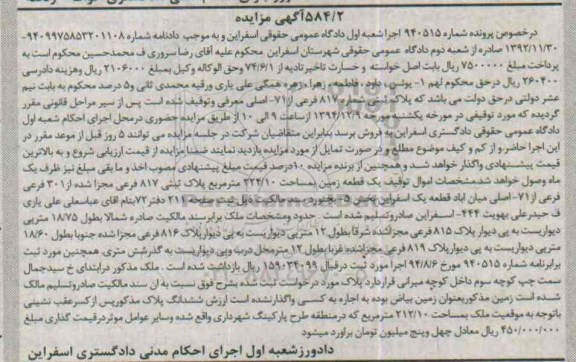 ۵۸۴/۲آگهی مزایده
درخصوص پرونده شماره ۹۴۰۵۱۵ اجرا شعبه اول دادگاه عمومی حقوقی اسفراین و به موجب دادنامه شماره ۹۴۰۹۹۷۵۸۵۳۲۰۱۱۰۸-
۱۳۹۲/۱۱/۳۰ صادره از شعبه دوم دادگاه عمومی حقوقی شهرستان اسفراین محکوم علیه آقای رضا سروری ف محمدحسین محکوم است به
پرداخت مبلغ ۷۵۰۰۰۰۰۰ ریال بابت اصل خواسته و خسارت تاخیر تادیه از ۷۴/۶/۱ وحق الوکاله وکیل بمبلغ ۲۱۰۶۰۰۰ ریال وهزینه دادرسی
۲۶۰۴۰۰ ریال در حق محکوم لهم ۱- یونس، داود، فاطمه، زهرا، زهره همگی علی یاری ورقیه محمدی ثانی و۵ درصد محکوم به بابت نیم
عشر دولتی درحق دولت می باشد که پلاک ثبتی شماره ۸۱۷ فرعی از۷۱- اصلی معرفی وتوقیف شده است پس از سیر مراحل قانونی مقرر
گردیده که مورد توقیفی در مورخه یکشنبه مورخه ۱۳۹۴/۱۲/۹ ازساعت ۹ الی ۱۰ از طریق مزایده حضوری درمحل اجرای احکام شعبه اول
دادگاه عمومی حقوقی دادگستری اسفراین به فروش برسد بنابراین متقاضیان شرکت در جلسه مزایده می توانند ۵ روز قبل از موعد مقرر در
این اجرا حاضر و از کم و کیف موضوع مطلع و در صورت تمایل از مورد مزایده بازدید نمایند ضمنا مزایده از قیمت ارزیابی شروع و به بالاترین
قیمت پیشنهادی واگذار خواهد شد و همچنین از برنده مزایده ۱۰درصد قیمت مبلغ پیشنهادی مصوب اخذ و ما بقی مبلغ نیز ظرف یک
ماه وصول خواهد شدمشخصات اموال توقیف یک قطعه زمین بمساحت ۲۲۴/۱۰ مترمربع پلاک ثبتی ۸۱۷ فرعی مجزا شده از۳۰۱ فرعی
از۷۱- اصلی میان اباد قطعه یک اسفراین بخش ۵- بجنورد سند مالکیت ذیل ثبت صفحه ۲۱۱ دفتر۷۲بنام آقای عباسعلی علی یاری
ف حیدرعلی بهویت ۴۴۴- اسفراین صادروتسلیم شده است حدود ومشخصات ملک برابرسند مالکیت صادره شمالا بطول ۱۸/۷۵ متربی
دیواریست به پی دیوار پلاک ۸۱۵ فرعی مجزاشده شرقا بطول ۱۲ متربی دیواریست به پی دیوارپلاک ۸۱۶ فرعی مجزا شده جنوبا بطول ۱۸/۶۰
متربی دیواریست به پی دیوارپلاک ۸۱۹ فرعی مجزاشده غربا بطول ۱۲ مترمحل درب وپی دیواریست به گذرشش متری. همچنین مورد ثبت
برابرنامه شماره ۹۴۰۵۱۵ مورخ ۹۴/۸/۶ اجرا مورد ثبت درقبال ۱۵۹۰۳۴۰۹۹ ریال بازداشت شده است . ملک مذکور درابتدای خ سیدجمال
سمت چپ کوچه سوم داخل کوچه میرانی قراردارد پلاک مورد درخواست ثبت شده بشرح فوق نسبت به ان سند مالکیت صادروتسلیم مالک
شده است زمین مذکوربعنوان زمین بیاض بوده به اجاره به کسی واگذارنشده است ارزش ششدانگ پلاک مذکورپس ازکسرعقب نشینی
باتوجه به موقعیت ملک بمساحت ۲۱۲/۱۰ مترمربع که درمنطقه طرح پارکینگ شهرداری واقع شده وسایر عوامل موثردرقیمت گذاری مبلغ
۴۵۰/۰۰۰/۰۰۰ ریال معادل چهل وپنج میلیون تومان براورد میشود
دادورزشعبه اول اجرای احکام مدنی دادگستری اسفراین